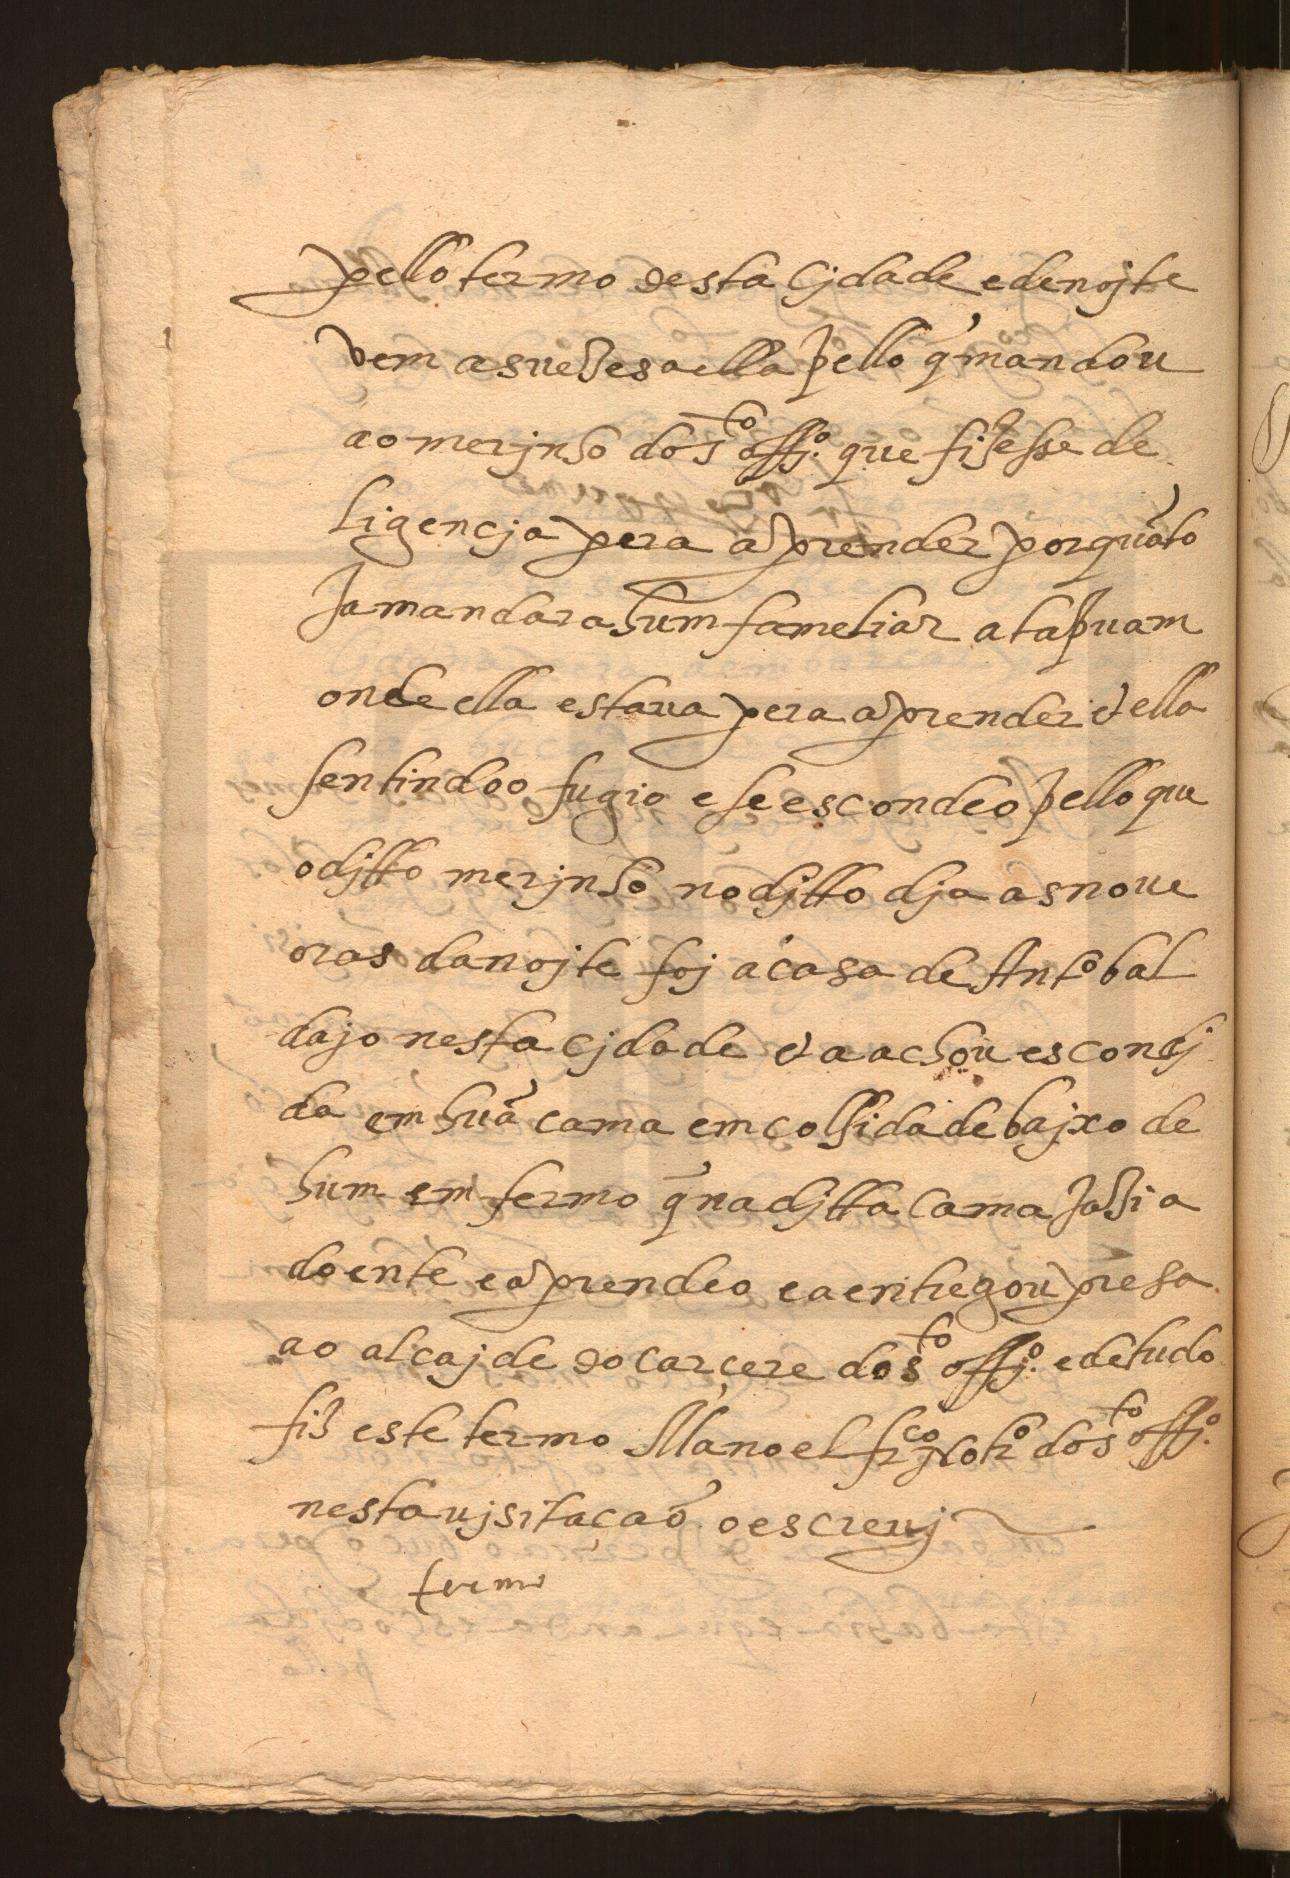 pello termo desta cjdade e de nojte
vem as vezes a ella pello q̃ mandou
ao merjnho do sto offjo. que fizesse de
ligencja pera a prender porquãto
Ja mandara hum fameliar a tapuam
onde ella estaua pera a prender & ella
sentindoo fugio e se escondeo pello que
o djtto merjnho no djtto dja as noue
oras da nojte foj a casa de Anto bal
dajo nesta cjdade & a achou escondj
da em huã cama emcolhida debajxo de
hum emfermo q̃ na djtta cama Jazia
doente e a prendeo e a entregou presa
ao alcajde do carcere do sto offjo. e de tudo
fiz este termo Manoel frco notro do sto offjo.
nesta vjsitacaõ o escreuj
termo